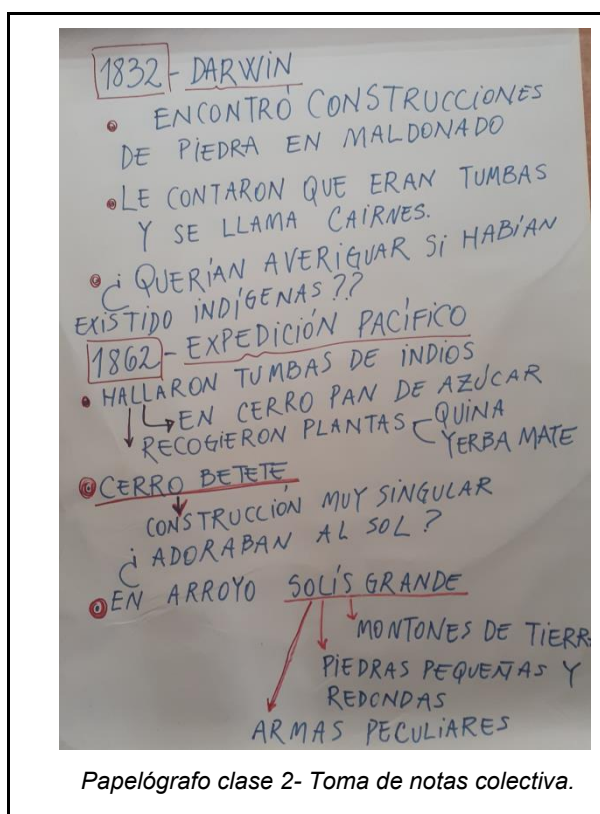 1832 - DARWIN
• ENCONTRÓ CONSTRUCCIONES
DE PIEDRA EN MALDONADO
• LE CONTARON QUE ERAN TUMBAS
Y SE LLAMA CAIRNES.
• ¿QUERÍAN AVERIGUAR SI HABÍAN
EXISTIDO INDÍGENAS??
1862 - EXPEDICIÓN PACÍFICO
• HALLARON TUMBAS DE INDIOS
EN CERRO PAN DE AZÚCAR
RECOGIERON PLANTAS QUINA
YERBA MATE
CERRO BETETE
CONSTRUCCIÓN MUY SINGULAR
¿ADORABAN AL SOL?
EN ARROYO SOLÍS GRANDE
MONTONES DE TIERR
PIEDRAS PEQUEÑAS Y
REDONDAS
ARMAS PECULIARES
Papelógrafo clase 2- Toma de notas colectiva.